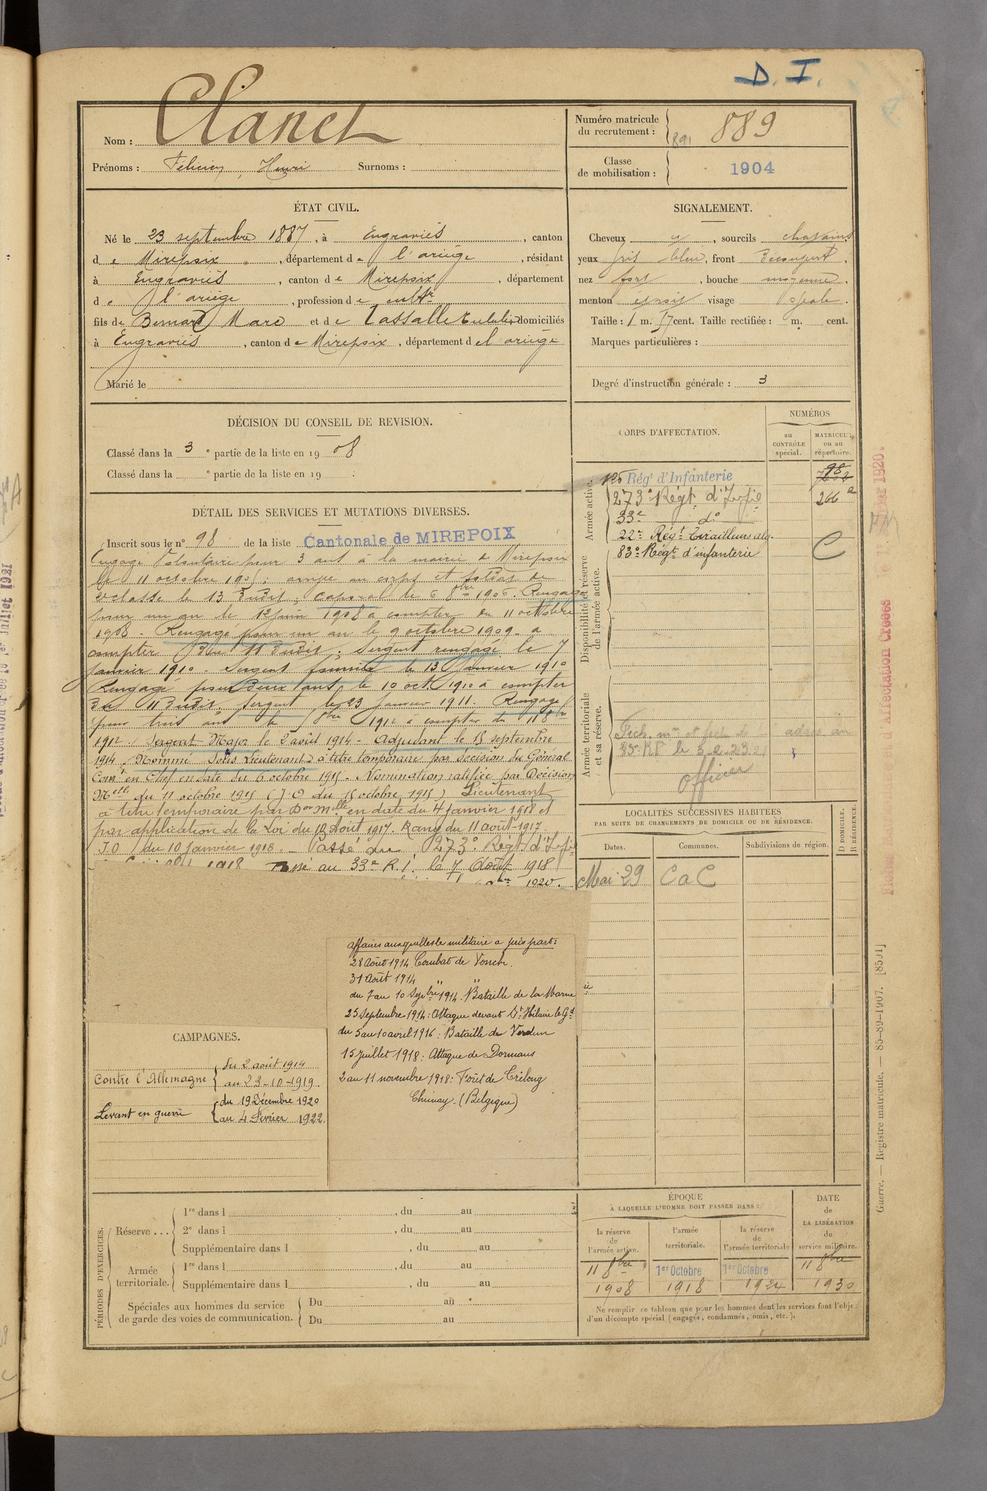 D. I.
Nom : Clanet
Prénoms : Félicien, Henri Surnoms :
Numéro matricule du recrutement : 889
891
Classe de mobilisation : 1904
ÉTAT CIVIL.
Né le 23 septembre 1887, à Engraviès, canton
de Mirepoix, département de l'ariège, résidant
à Engraviès, canton de Mirepoix, département
de l'ariège, profession de cultr
fils de Bernard Marc et de Lassalle Eulalie domiciliés
à Engraviès, canton de Mirepoix, département de l'ariège
Marié le
SIGNALEMENT.
Cheveux, sourcils chatains
yeux gris bleu, front découvert
nez fort, bouche moyenne.
menton visage ovale.
Taille : 1 m. cent. Taille rectifiée : m. cent.
Marques particulières :
Degré d'instruction générale : 3
DÉCISION DU CONSEIL DE REVISION.
Classé dans la 3e partie de la liste en 1908
Classé dans la e partie de la liste en 19
DÉTAIL DES SERVICES ET MUTATIONS DIVERSES.
Inscrit sous le n° 98 de la liste Cantonale de MIREPOIX
Engagé Volontaire pour 3 ans à la mairie de Mirepoix
le 11 octobre 1905; arrivé au corps et soldat de
2e classe le 13 dudit; Caporal le 6 8bre 1906. Rengagé
pour un an le juin 1908 à compter du 11 octobre
1908. Rengagé pour un an le 9 octobre 1909 à
compter du 11 dudit; Sergent rengagé le 7
janvier 1910 Sergent fourrier le 13 janvier 1910
Rengagé pour deux ans le 10 oct. 1910 à compter
du 11 dudit, Sergent le 23 janvier 1911. Rengagé
pour trois ans le 8bre 1912 à compter du 11 8bre
1912. Sergent Major le 2 août 1914 - Adjudant le 15 septembre
1914. Nommé Sous Lieutenant à titre temporaire par décision du Général
Comt en Chef en date du 6 octobre 1915. Nomination ratifiée par Décision
Mlle du 11 octobre 1915 (J.O du 15 octobre 1915) Lieutenant
à titre temporaire par Don Mlle en date du 4 janvier 1918 et
par application de la Loi du 10 août 1917. Rang du 11 août 1917
J.O du 10 janvier 1918. Passé au 273e Régt d'Infie
1918 Passé au 33e R.I. le 7 Août 1918
1920.
CORPS D'AFFECTATION.
NUMÉROS
au CONTRÔLE spécial.
MATRICULE ou au répertoire.
Armée active.
Rég' d'Infanterie
273e Régt d'Infie 266
33e do
22e Régt Tirailleurs alg.
83e Régt d'infanterie C
Disponibilité et réserve de l'armée active.
Armée territoriale et sa réserve.
officier
LOCALITÉS SUCCESSIVES HABITÉES
PAR SUITE DE CHANGEMENTS DE DOMICILE OU DE RÉSIDENCE.
Dates. Communes. Subdivisions de région. D DOMICILE. R RÉSIDENCE.
Mai 29 CaC
affaires auxquelles le militaire a pris part :
28 Août 1914 Combat de Vonch.
31 Août 1914 " "
du 7 au 10 Septbre 1914. Bataille de la Marne
25 Septembre 1914 : Attaque devant St Hilaire le Gd
du 5 au 10 avril 1916 : Bataille de Verdun
15 juillet 1918 : Attaque de Dormans
2 au 11 novembre 1918 : Forêt de Trélong
Chimay. (Belgique)
CAMPAGNES.
Contre l'Allemagne { du 2 août 1914
au 23-10-1919.
Levant en guerre { du 19 Décembre 1920
au 4 Février 1922.
PÉRIODES D'EXERCICES.
Réserve ... 1re dans l , du au
2e dans l , du au
Supplémentaire dans l , du au
Armée territoriale. 1re dans l , du au
Supplémentaire dans l , du au
Spéciales aux hommes du service de garde des voies de communication. Du au
Du au
ÉPOQUE
À LAQUELLE L'HOMME DOIT PASSER DANS :
la réserve de l'armée active. l'armée territoriale. la réserve de l'armée territoriale
DATE de LA LIBÉRATION du service militaire.
11 8bre 1908 1er Octobre 1918 1er Octobre 1924 11 8bre 1930
Ne remplir ce tableau que pour les hommes dont les services font l'objet
d'un décompte spécial (engagés, condamnés, omis, etc.).
Guerre. — Registre matricule. — 85-89-1907. [8501]